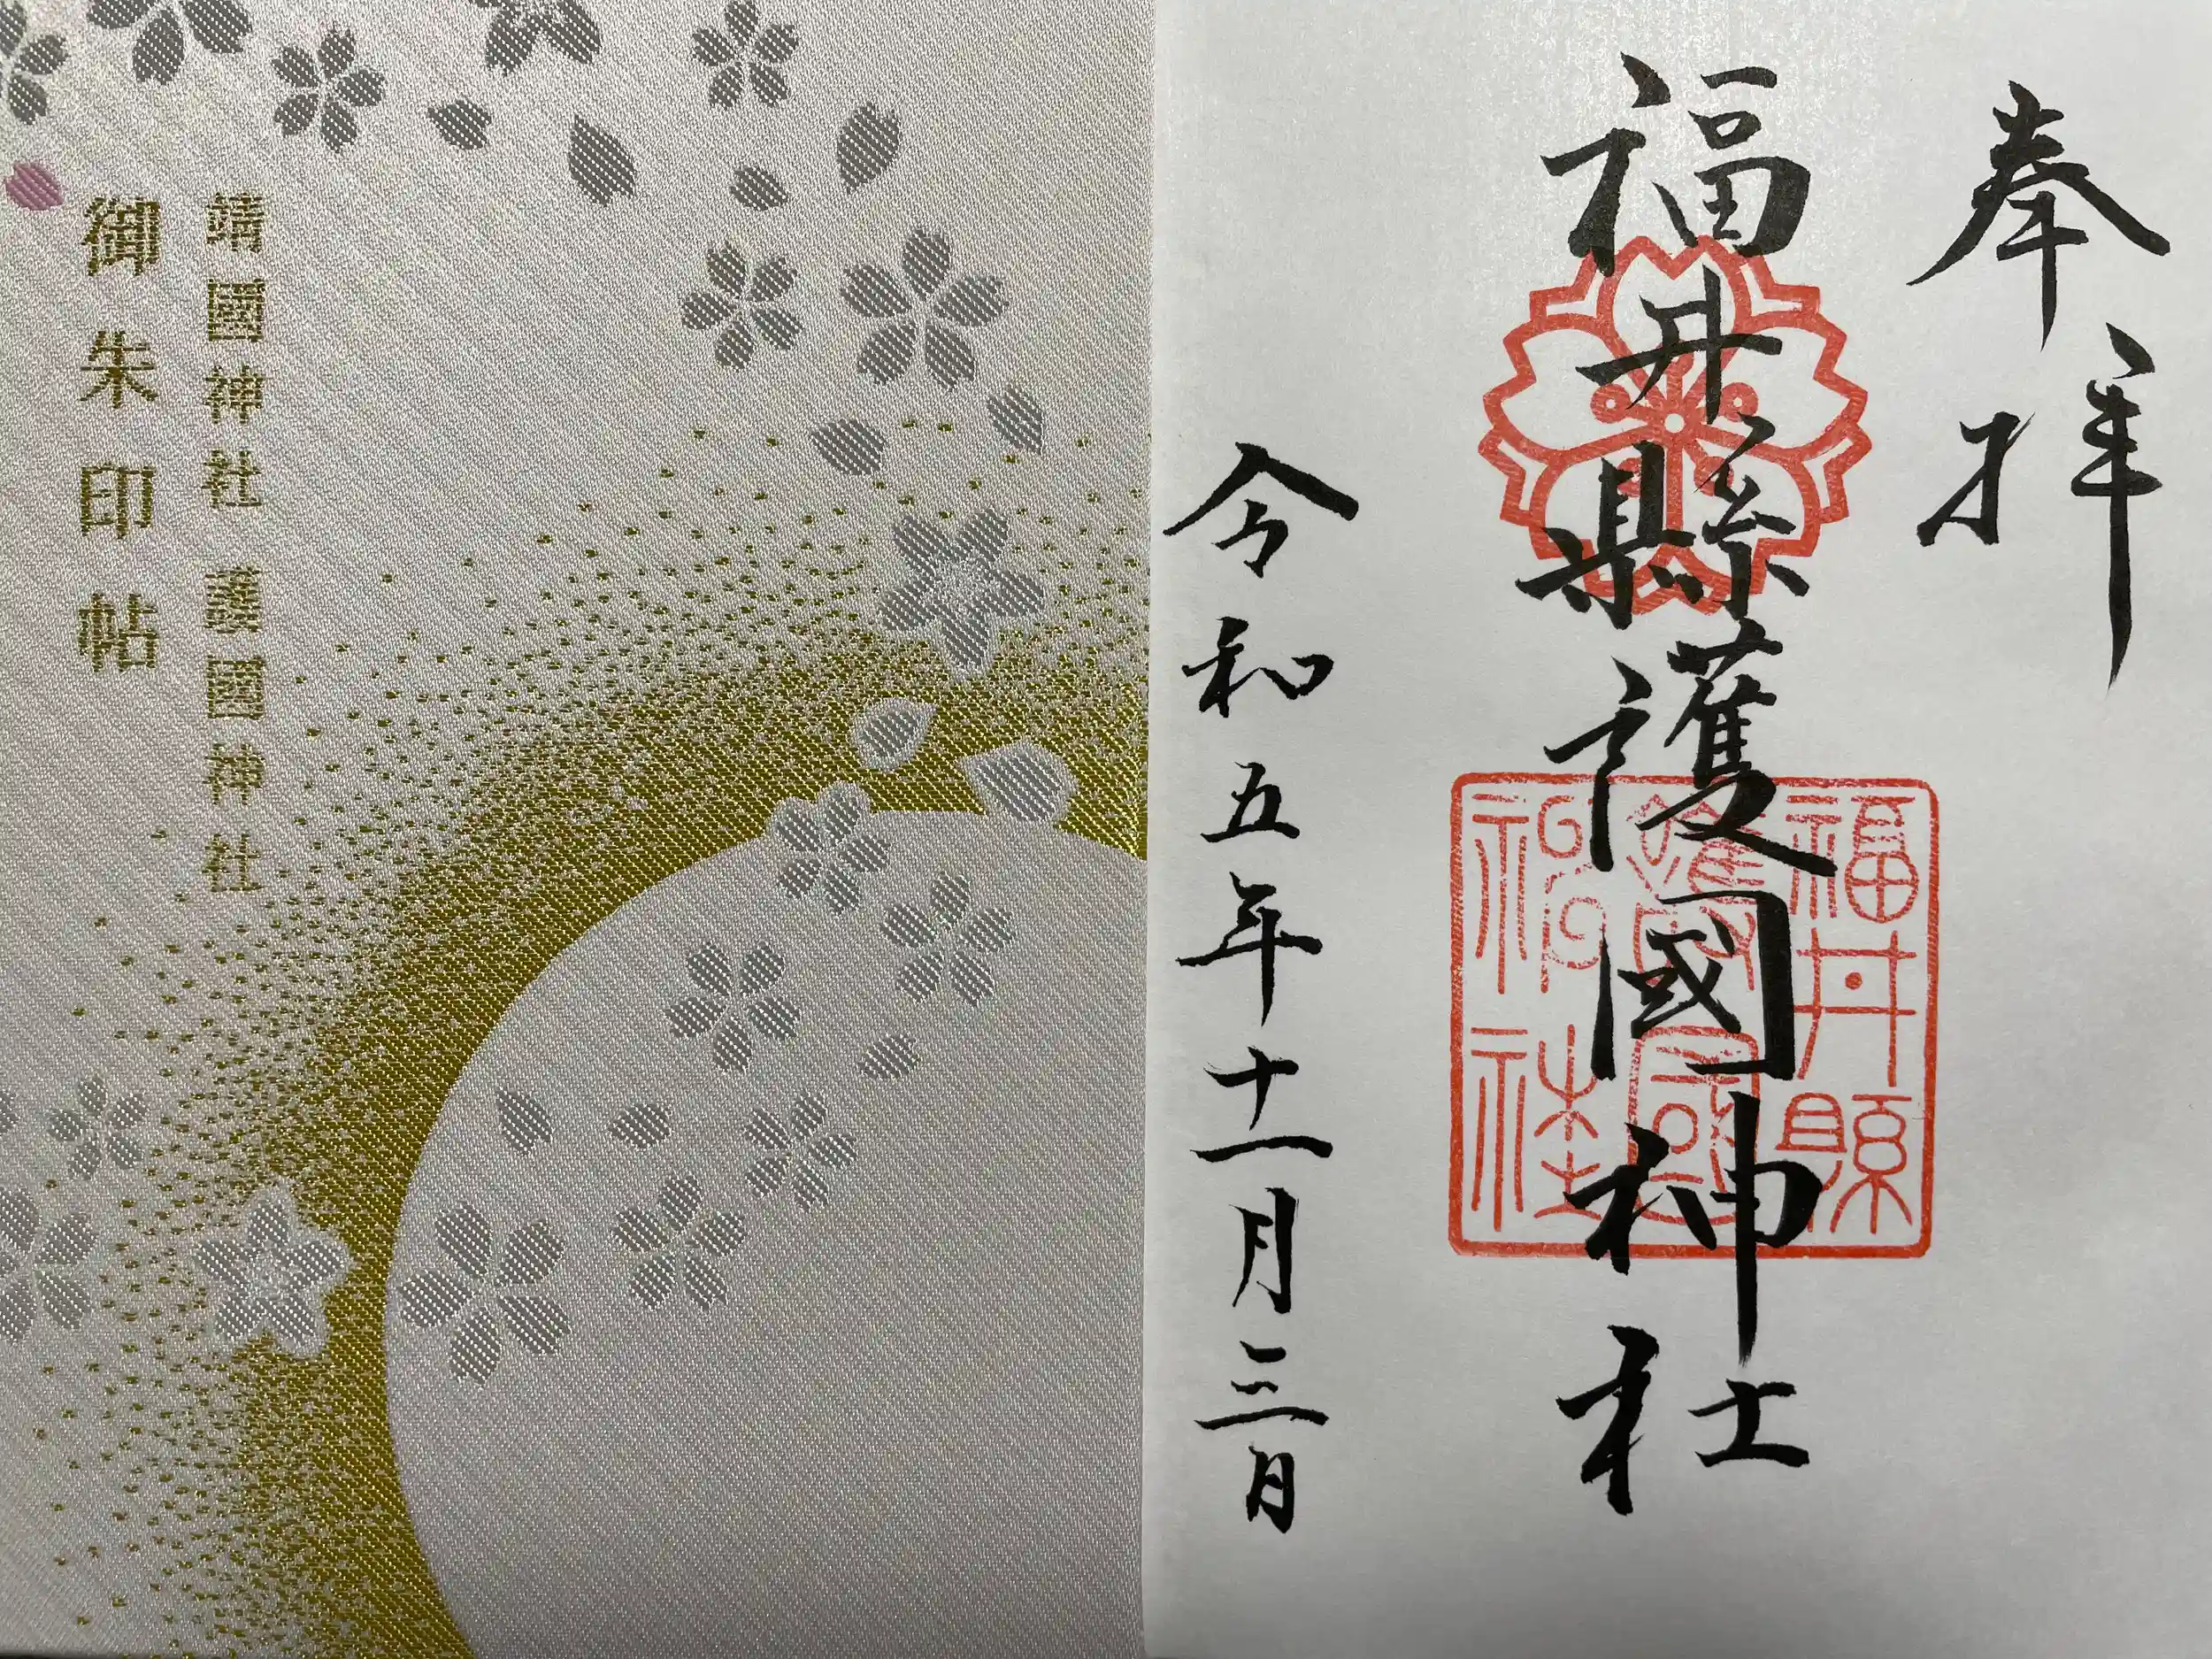 靖國神社 護國神社
御朱印帖
奉拝
福井縣護國神社
令和五年十一月三日
福井縣
護國
神社